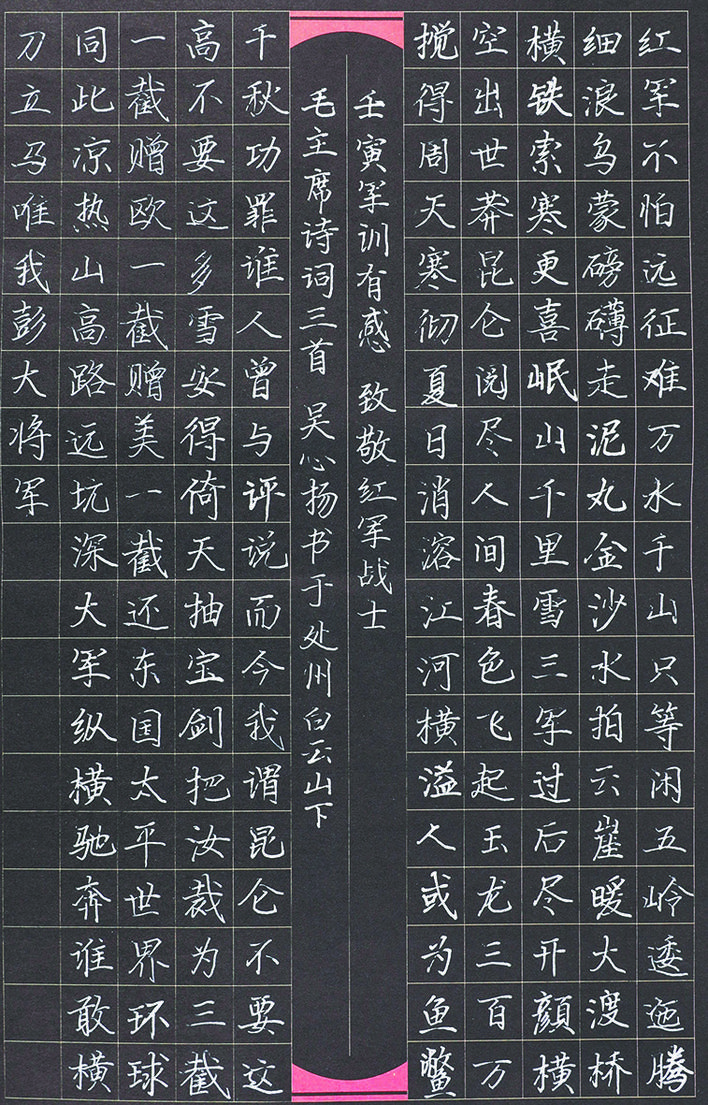 红军不怕远征难万水千山只等闲五岭逶迤腾
细浪乌蒙磅礴走泥丸金沙水拍云崖暖大渡桥
横铁索寒更喜岷山千里雪三军过后尽开顏横
空出世莽昆仑阅尽人间春色飞起玉龙三百万
搅得周天寒彻夏日消溶江河横溢人或为鱼鳖
壬寅军训有感 致敬红军战士
毛主席诗词三首 吴心扬书于处州白云山下
千秋功罪谁人曾与评说而今我谓昆仑不要这
高不要这多雪安得倚天抽宝剑把汝裁为三截
一截赠欧一截赠美一截还东国太平世界环球
同此凉热山高路远坑深大军纵横驰奔谁敢横
刀立马唯我彭大将军